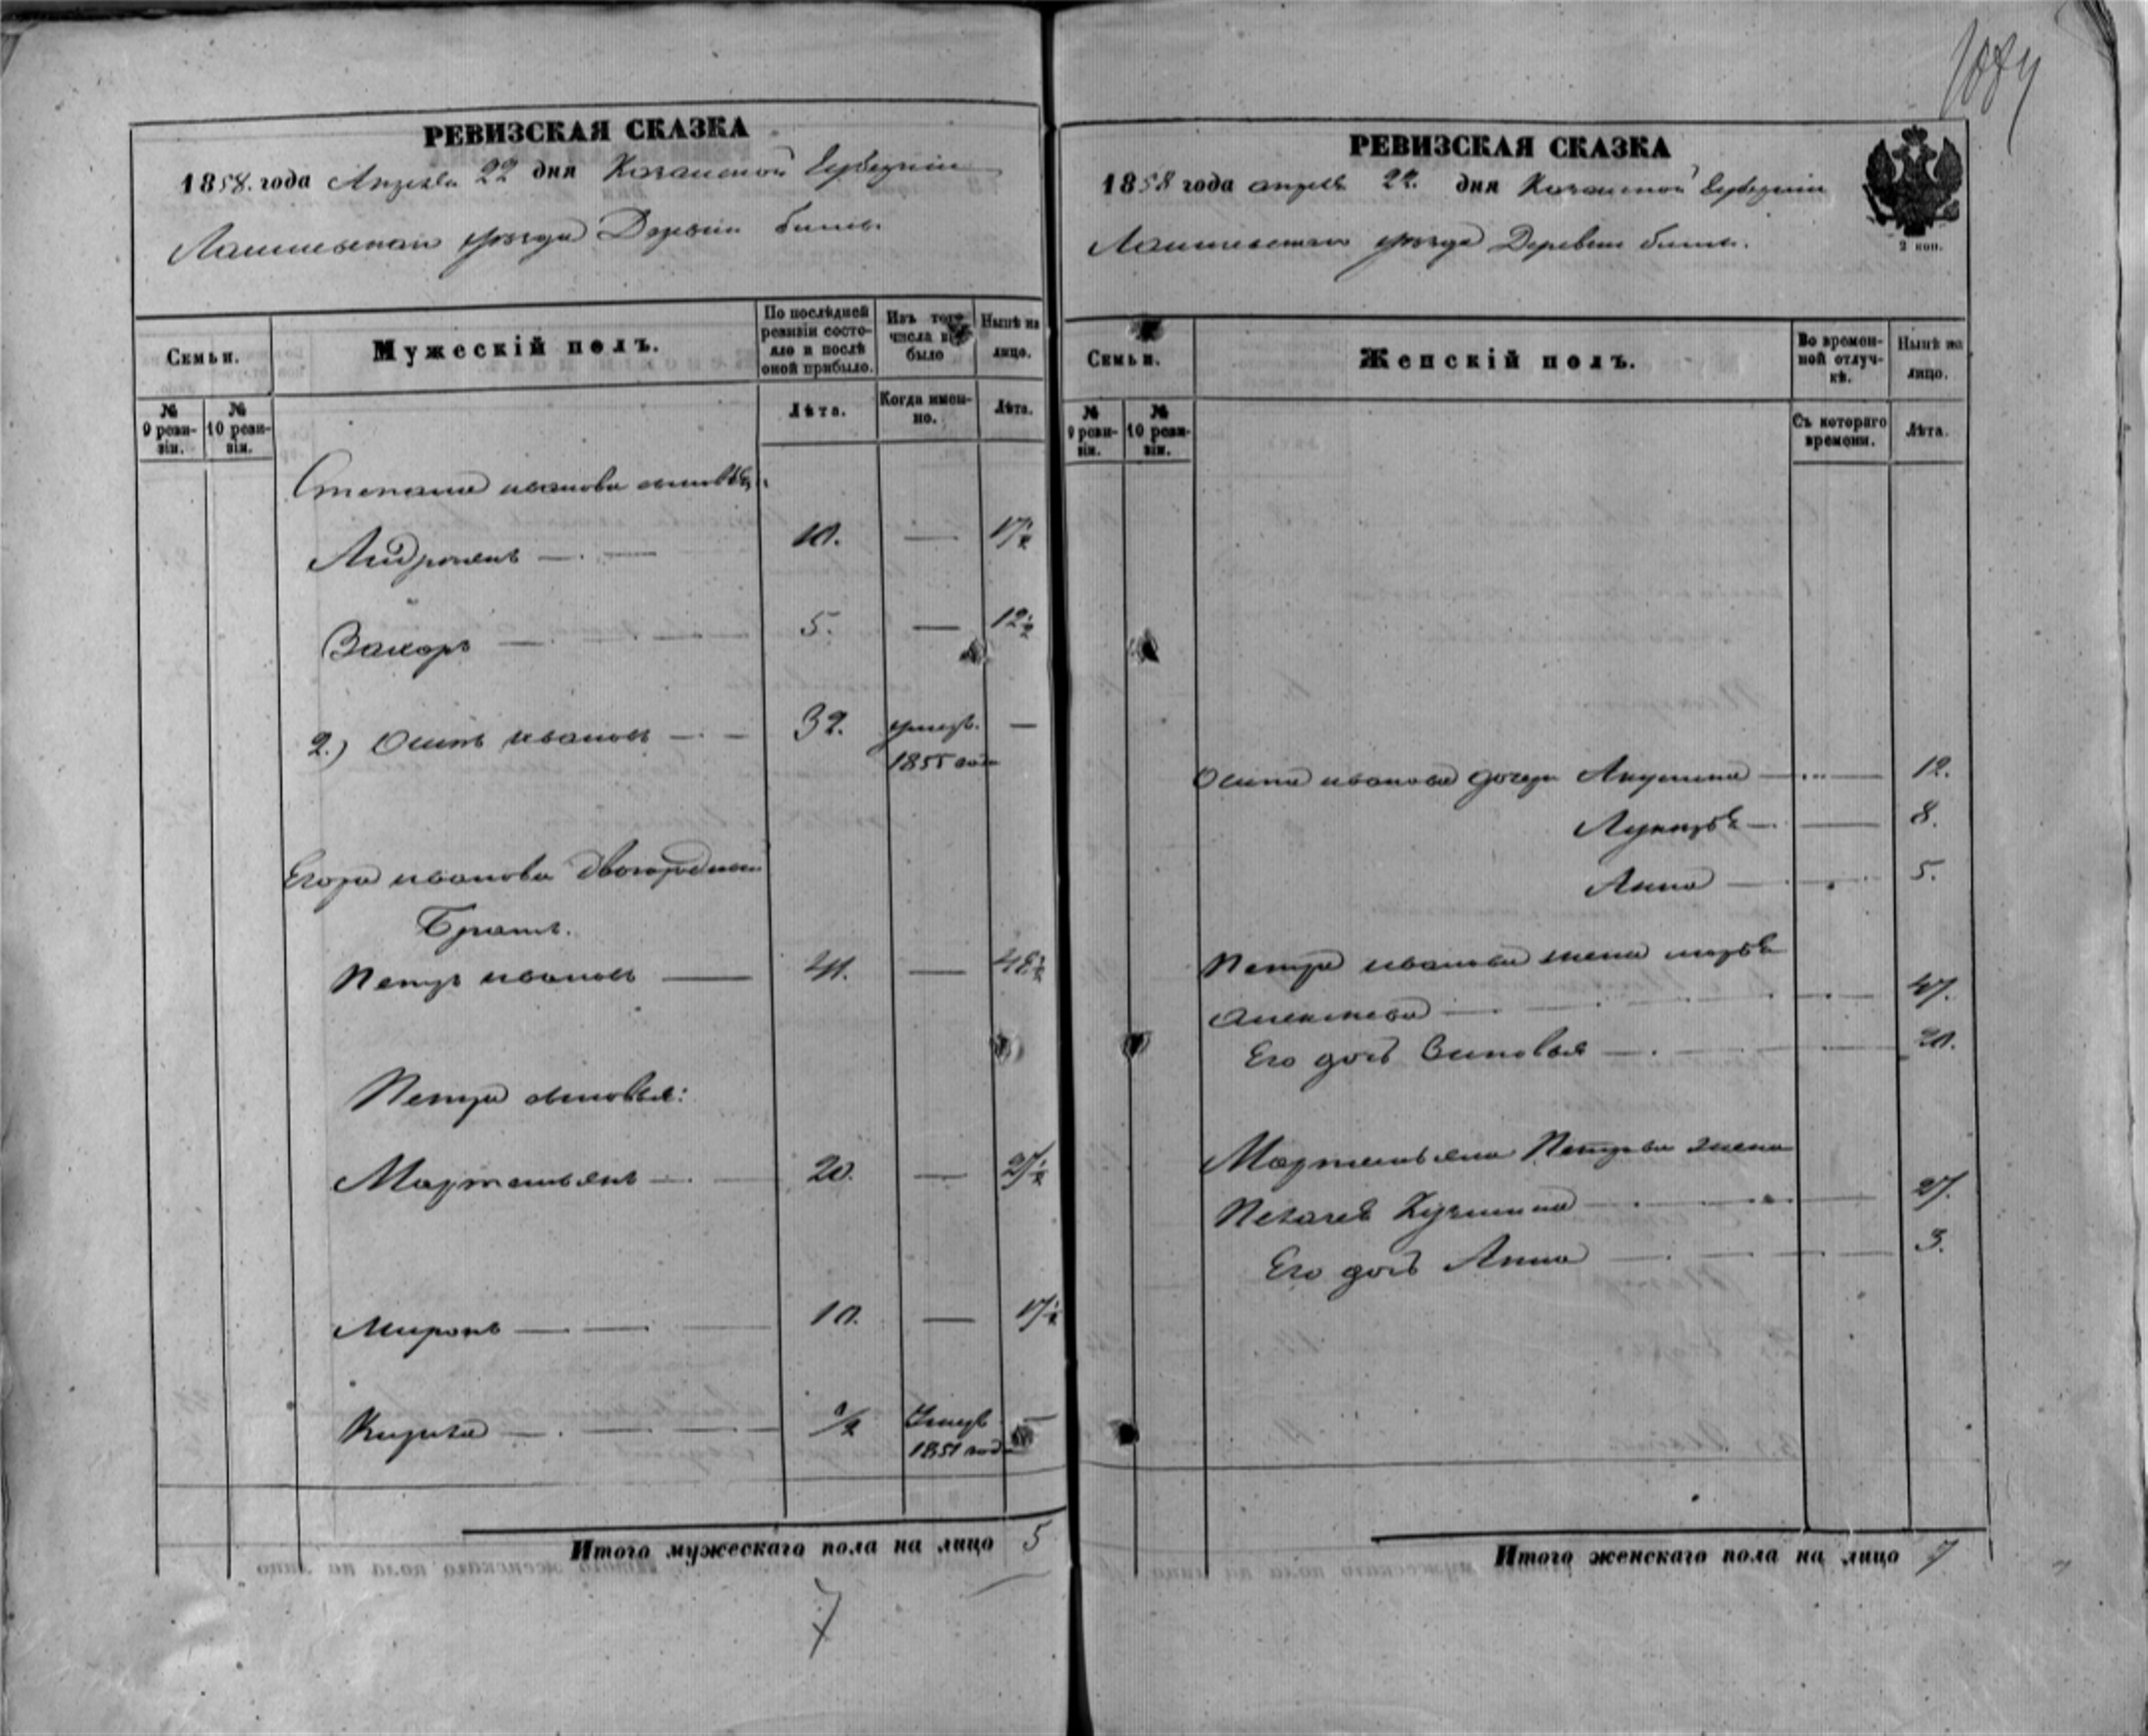 1084
РЕВИЗСКАЯ СКАЗКА
1858. года Апреля 22 дня Казанской Губернии
Лаишевскаго уезда Деревни
Семьи.
Мужескій полъ.
По послѣдней ревизіи состояло и послѣ оной прибыло.
Изъ того числа выбыло
Нынѣ на лицо.
№ 9 ревизіи.
№ 10 ревизіи.
Лѣта.
Когда именно.
Лѣта.
Степана иванова сыновья
Андроянъ — 10. — 17½
Захаръ — 5. — 12½
2.) Осипъ ивановъ — 32. умеръ —
1855 года
Егора иванова двоюродный
Братъ.
Петръ ивановъ — 41. — 48½
Петра сыновья:
Мартемьянъ — 20. — 27½
Миронъ — 10. — 17½
Кирила — ½ Умеръ —
1851 года
Итого мужескаго пола на лицо 5
7
РЕВИЗСКАЯ СКАЗКА
1858 года апреля 22. дня Казанской Губернии
Лаишевскаго уезда Деревни
2 коп.
Семьи.
Женскій полъ.
Во временной отлучкѣ.
Нынѣ на лицо.
№ 9 ревизіи.
№ 10 ревизіи.
Съ котораго времени.
Лѣта.
Осипа иванова дочери Акулина — 12.
Лукерья — 8.
Анна — 5.
Петра иванова жена марья
алексеева — 47.
Его дочь Зиновья — 20.
Мартемьяна Петрова жена
Пелагея Кузмина — 27.
Его дочь Анна — 3.
Итого женскаго пола на лицо 7